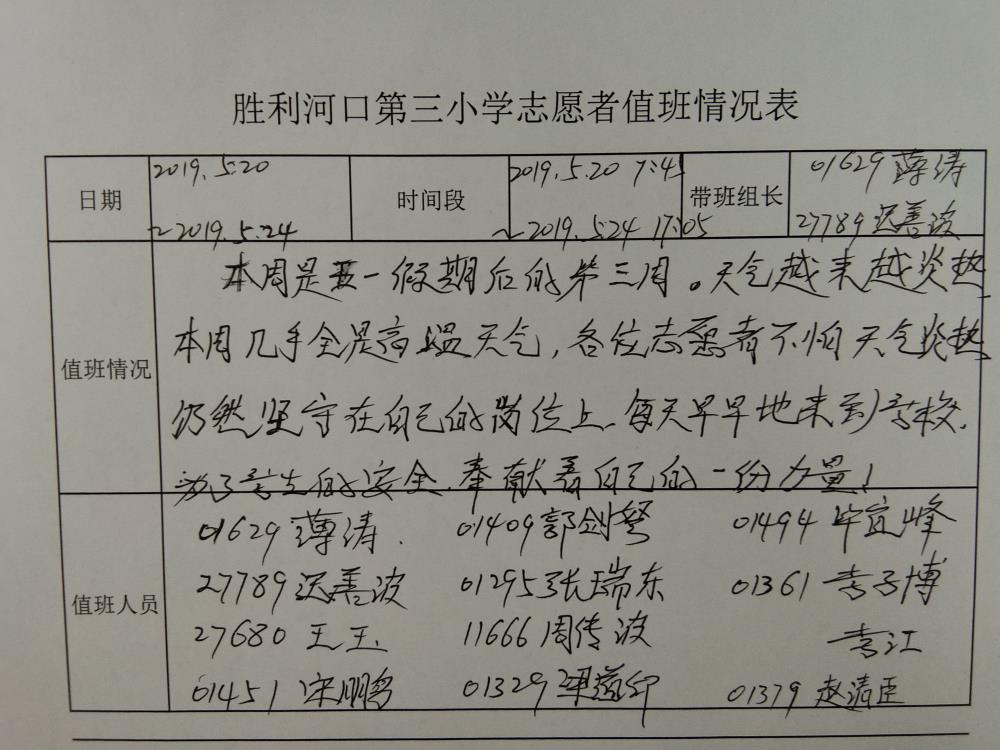 胜利河口第三小学志愿者值班情况表
日期 2019.5.20 ~2019.5.24 时间段 2019.5.20 7:45 ~2019.5.24 17:05 带班组长 01629 薄涛 27789 迟善波
值班情况
本周是五一假期后的第三周。天气越来越炎热
本周几乎全是高温天气,各位志愿者不怕天气炎热
仍然坚守在自己的岗位上,每天早早地来到学校,
为了学生的安全,奉献着自己的一份力量!
值班人员
01629 薄涛. 01409 郭剑 01494 毕宜峰
27789 迟善波 01295 张瑞东 01361 李子博
27680 王玉 11666 周传波 李江
01451 宋鹏 01329 梁益印 01379 赵清臣